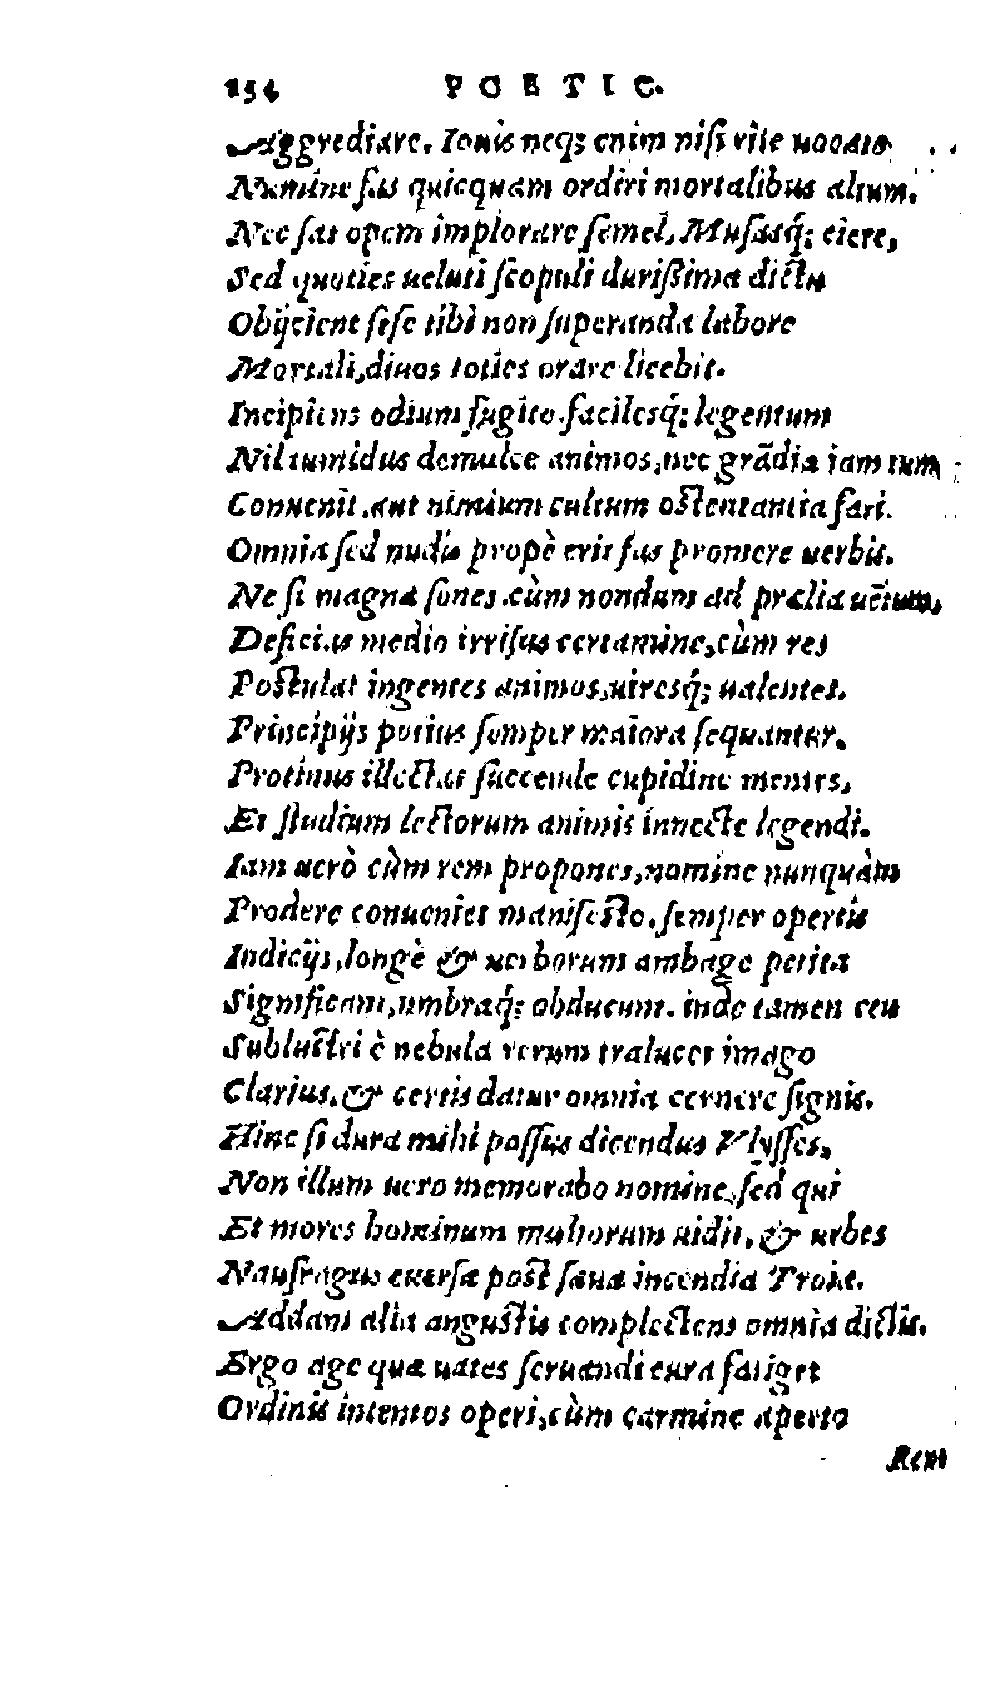 154 POETIC.
Aggrediare. Iouis neq; enim nisi rite uocato
Numine fas quicquam ordiri mortalibus altum.
Nec fas opem implorare semel, Musasq́; ciere,
Sed quoties ueluti scopuli durißima dictu
Obijcient sese tibi non superanda labore
Mortali, diuos toties orare licebit.
Incipiens odium fugito. facilesq́; legentum
Nil tumidus demulce animos, nec grãdia iam tum
Conuenit, aut nimium cultum ostentantia fari.
Omnia sed nudis propè erit fas promere uerbis.
Ne si magna sones, cùm nondum ad prælia uẽtum,
Deficias medio irrisus certamine, cùm res
Postulat ingentes animos, uiresq́; ualentes.
Principijs potius semper maiora sequantur.
Protinus illectas succende cupidine mentes,
Et studium lectorum animis innecte legendi.
Iam uerò cùm rem propones, nomine nunquàm
Prodere conueniet manifesto. semper opertis
Indicijs, longè & uerborum ambage petita
Significant, umbraq́; obducunt. inde tamen ceu
Sublustri è nebula rerum tralucet imago
Clarius, & certis datur omnia cernere signis.
Hinc si dura mihi passus dicendus Vlysses,
Non illum uero memorabo nomine, sed qui
Et mores hominum multorum uidit, & urbes
Naufragus euersæ post sæua incendia Troiæ.
Addam alia angustis complectens omnia dictis.
Ergo age quæ uates seruandi cura fatiget
Ordinis intentos operi, cùm carmine aperto
Rem